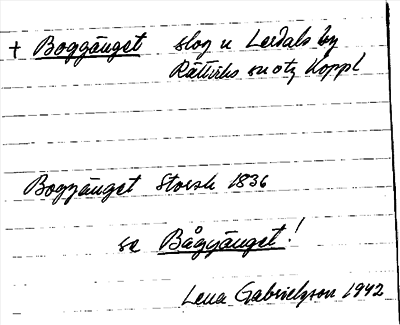 + Boggänget slog u Lerdals by
Rättviks sn otz Koppl
Boggänget Storsk 1836
se Bågänget!
Lena Gabrielsson 1942